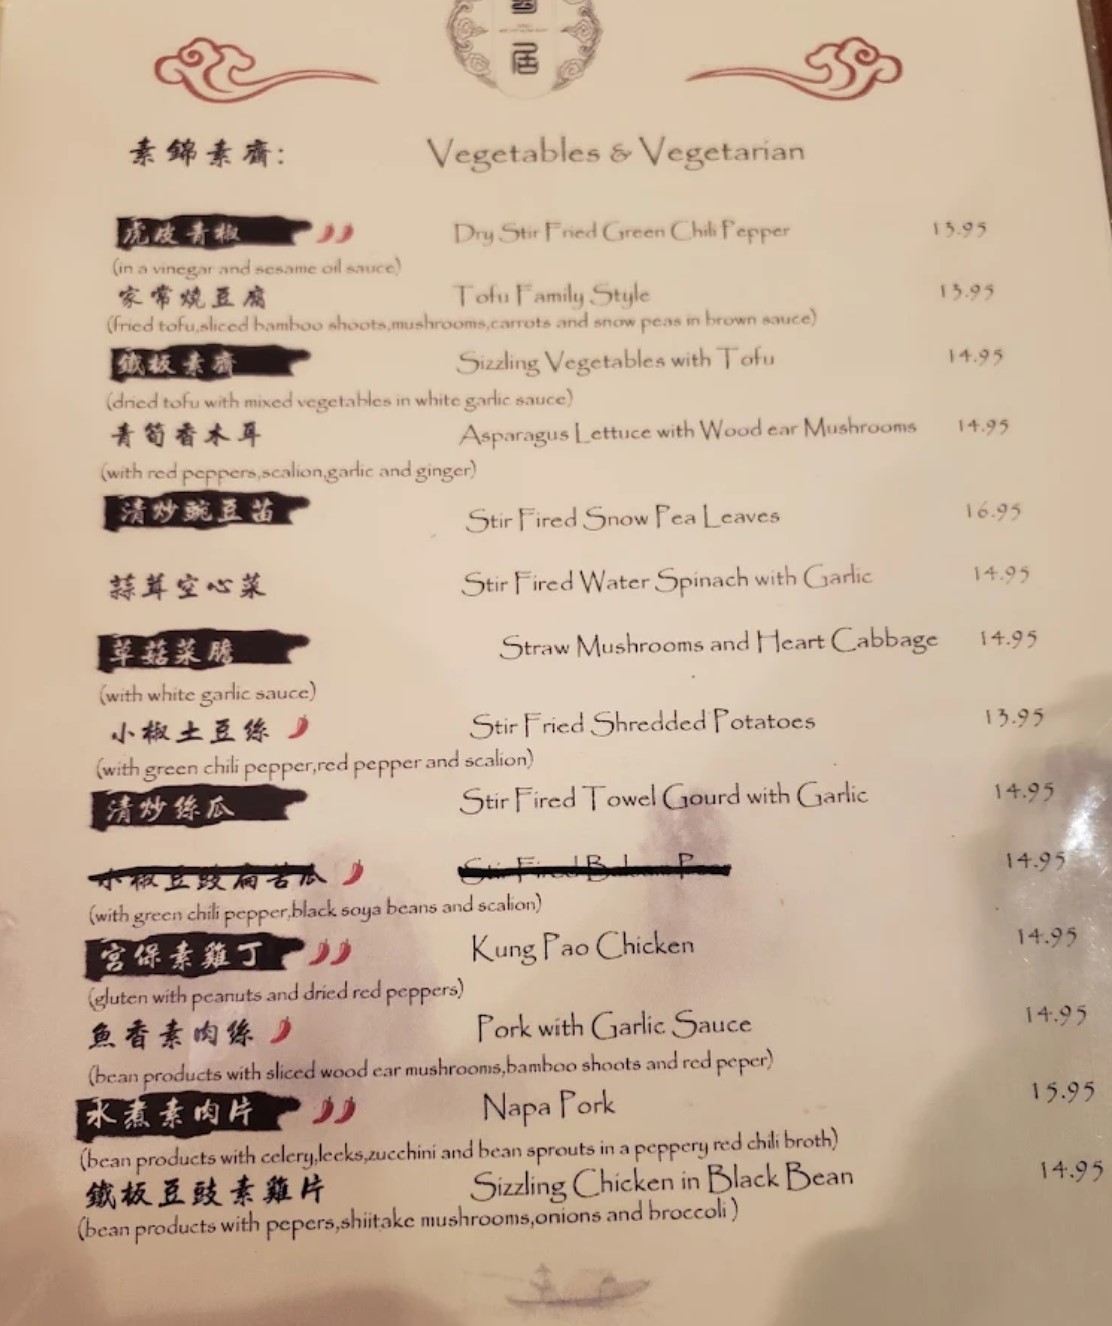 居
素錦素齋: Vegetables & Vegetarian
虎皮青椒 Dry Stir Fried Green Chili Pepper 13.95
(in a vinegar and sesame oil sauce)
家常燒豆腐 Tofu Family Style 13.95
(fried tofu,sliced bamboo shoots,mushrooms,carrots and snow peas in brown sauce)
鐵板素齋 Sizzling Vegetables with Tofu 14.95
(dried tofu with mixed vegetables in white garlic sauce)
青筍香木耳 Asparagus Lettuce with Wood ear Mushrooms 14.95
(with red peppers,scalion,garlic and ginger)
清炒豌豆苗 Stir Fired Snow Pea Leaves 16.95
蒜茸空心菜 Stir Fired Water Spinach with Garlic 14.95
草菇菜膽 Straw Mushrooms and Heart Cabbage 14.95
(with white garlic sauce)
小椒土豆絲 Stir Fried Shredded Potatoes 13.95
(with green chili pepper,red pepper and scalion)
清炒絲瓜 Stir Fired Towel Gourd with Garlic 14.95
小椒豆豉煸苦瓜 Stir Fired Balsam Pear 14.95
(with green chili pepper,black soya beans and scalion)
宮保素雞丁 Kung Pao Chicken 14.95
(gluten with peanuts and dried red peppers)
魚香素肉絲 Pork with Garlic Sauce 14.95
(bean products with sliced wood ear mushrooms,bamboo shoots and red peper)
水煮素肉片 Napa Pork 15.95
(bean products with celery,leeks,zucchini and bean sprouts in a peppery red chili broth)
鐵板豆豉素雞片 Sizzling Chicken in Black Bean 14.95
(bean products with pepers,shiitake mushrooms,onions and broccoli)